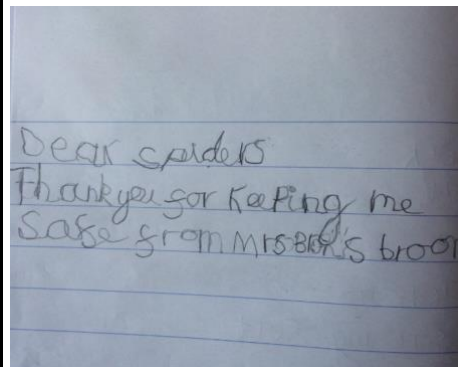 Dear spiders
Thankyou for Keeping me
Safe from Mrs 's broo